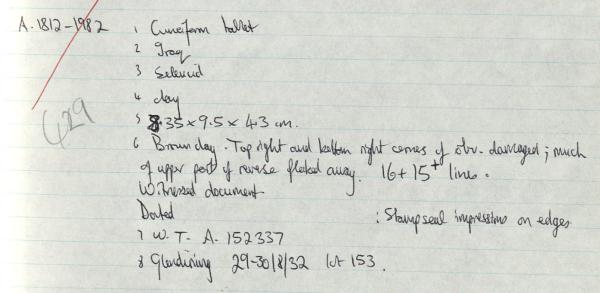 A.1812-1982
1 Cuneiform tablet
2 Iraq
3 Seleucid
4 clay
5 8.35 x 9.5 x 4.3 cm.
429
6 Brown clay. Top right and bottom right corners of obv. damaged; much
of upper part of reverse flaked away. 16 + 15+ lines.
Witnessed document
Dated : Stamp seal impressions on edges
7 W.T. A.152337
8 Glendining 29-30/8/32 lot 153.